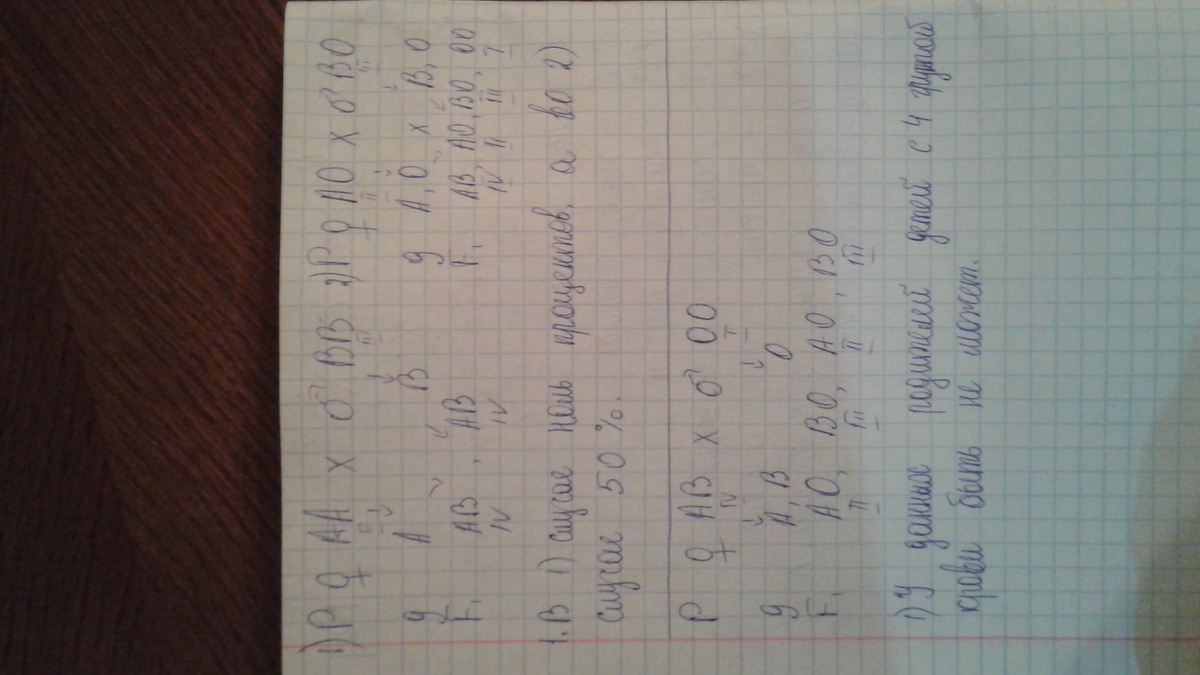 1) P ♀ AA x ♂ BB 2) P ♀ AO x ♂ BO
II III II III
g A B g A, O x B, O
F₁ AB, AB F₁ AB, AO, BO, OO
IV IV IV II III I
1. В 1) случае ноль процентов, а во 2)
случае 50 %.
P ♀ AB x ♂ OO
IV I
g A, B O
F₁ AO, BO, AO, BO
II III II III
1) У данных родителей детей с 4 группой
крови быть не может.